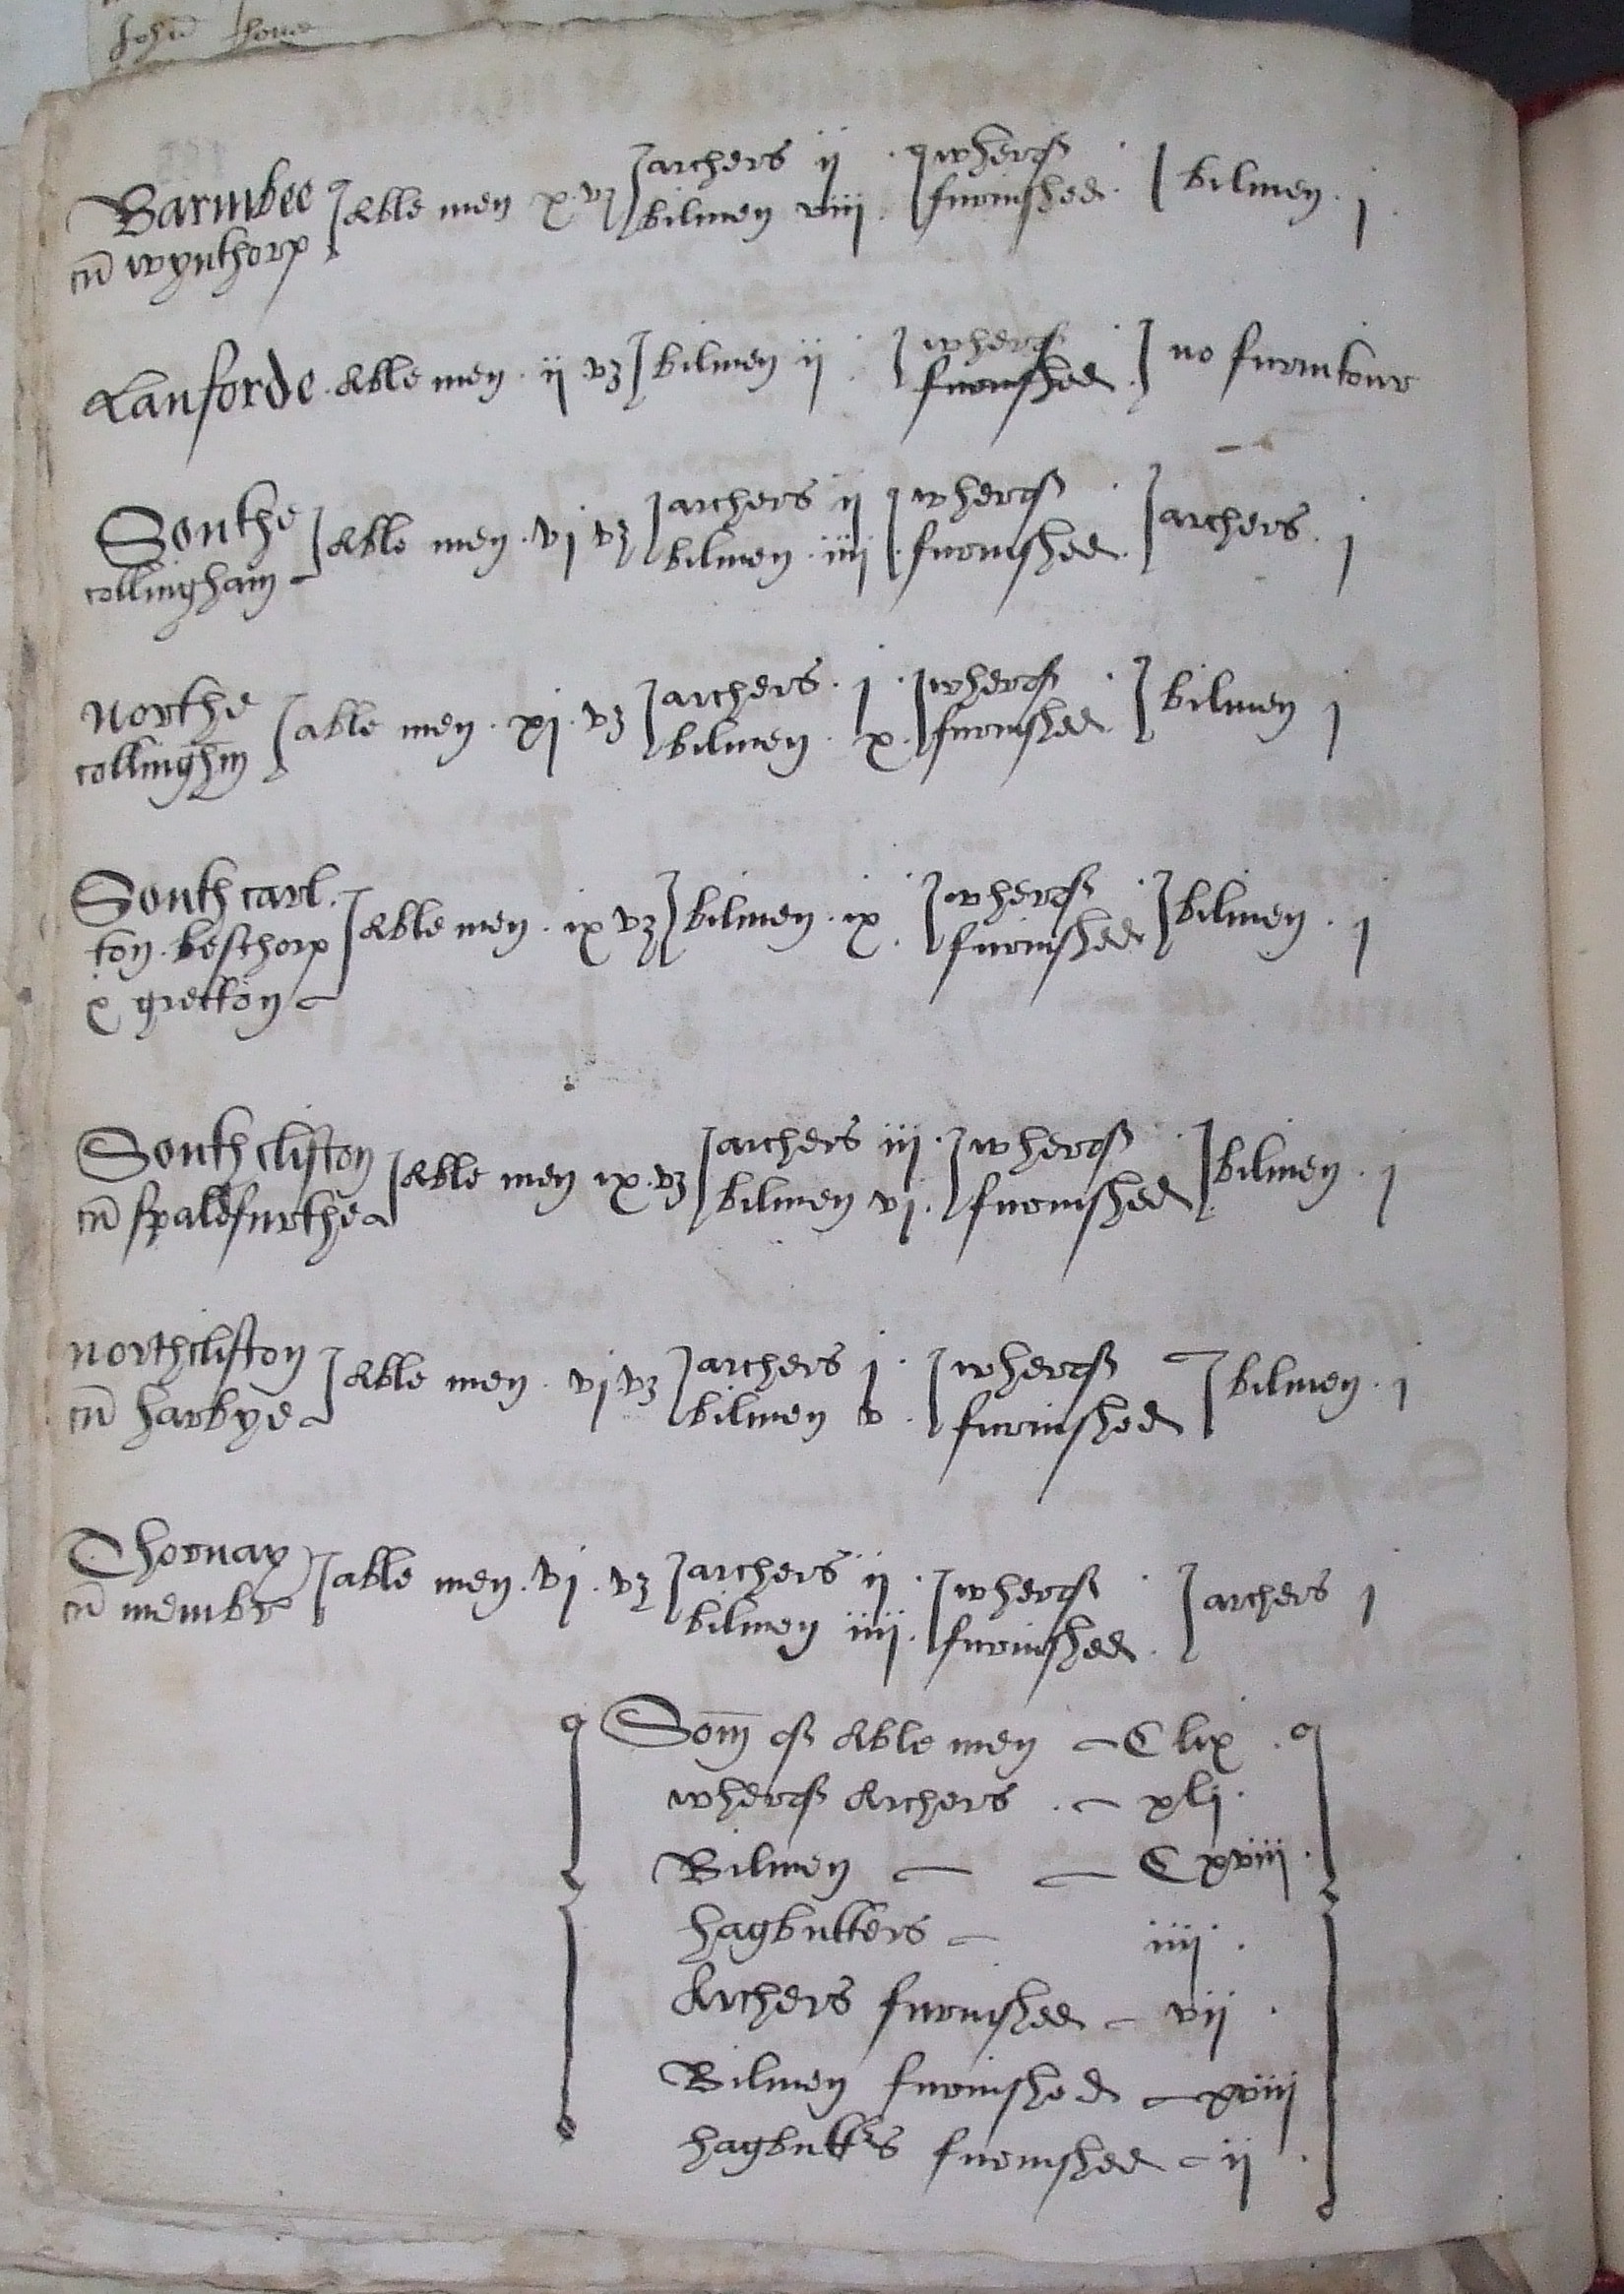 John thome
Barmbee
cū wynthorp
Able men x vȝ
archers ij
bilmen viij
wherof
furnished
bilmen j
Lanforde Able men ij vȝ bilmen ij
wherof
furnished
no furnitour
Southe
collingham
Able men vj vȝ
archers ij
bilmen iiij
wherof
furnished
archers j
Northe
collinghm̄
able men xj vȝ
archers j
bilmen x
wherof
furnished
bilmen j
Southcarl
ton besthorp
& gretton
Able men ix vȝ bilmen ix
wherof
furnished
bilmen j
Southclifton
cū spaldfurthe
Able men ix vȝ
archers iij
bilmen vj
wherof
furnished
bilmen j
Northclifton
cū harbye
Able men vj vȝ
archers j
bilmen v
wherof
furnished
bilmen j
Thornay
cū membr
able men vj vȝ
archers ij
bilmen iiij
wherof
furnished
archers j
Som̄ of Able men C lix
wherof Archers xlj
Bilmen C xviij
hagbutters iiij
Archers furnished vij
Bilmen furnished xviij
hagbutts furnished ij